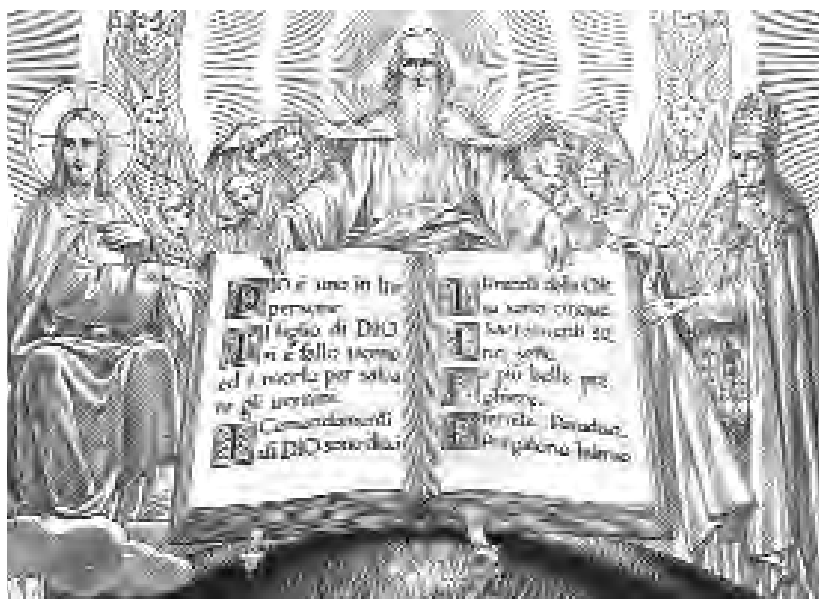 DIO è uno in tre
persone
Il figlio di DIO
si è fatto uomo
ed è morto per salva
re gli uomini.
I Comandamenti
di DIO sono dieci
I della Chie
sa sono cinque.
I Sacramenti so
no sette.
Le più belle pre
ghiere.
Paradiso,
Purgatorio Inferno